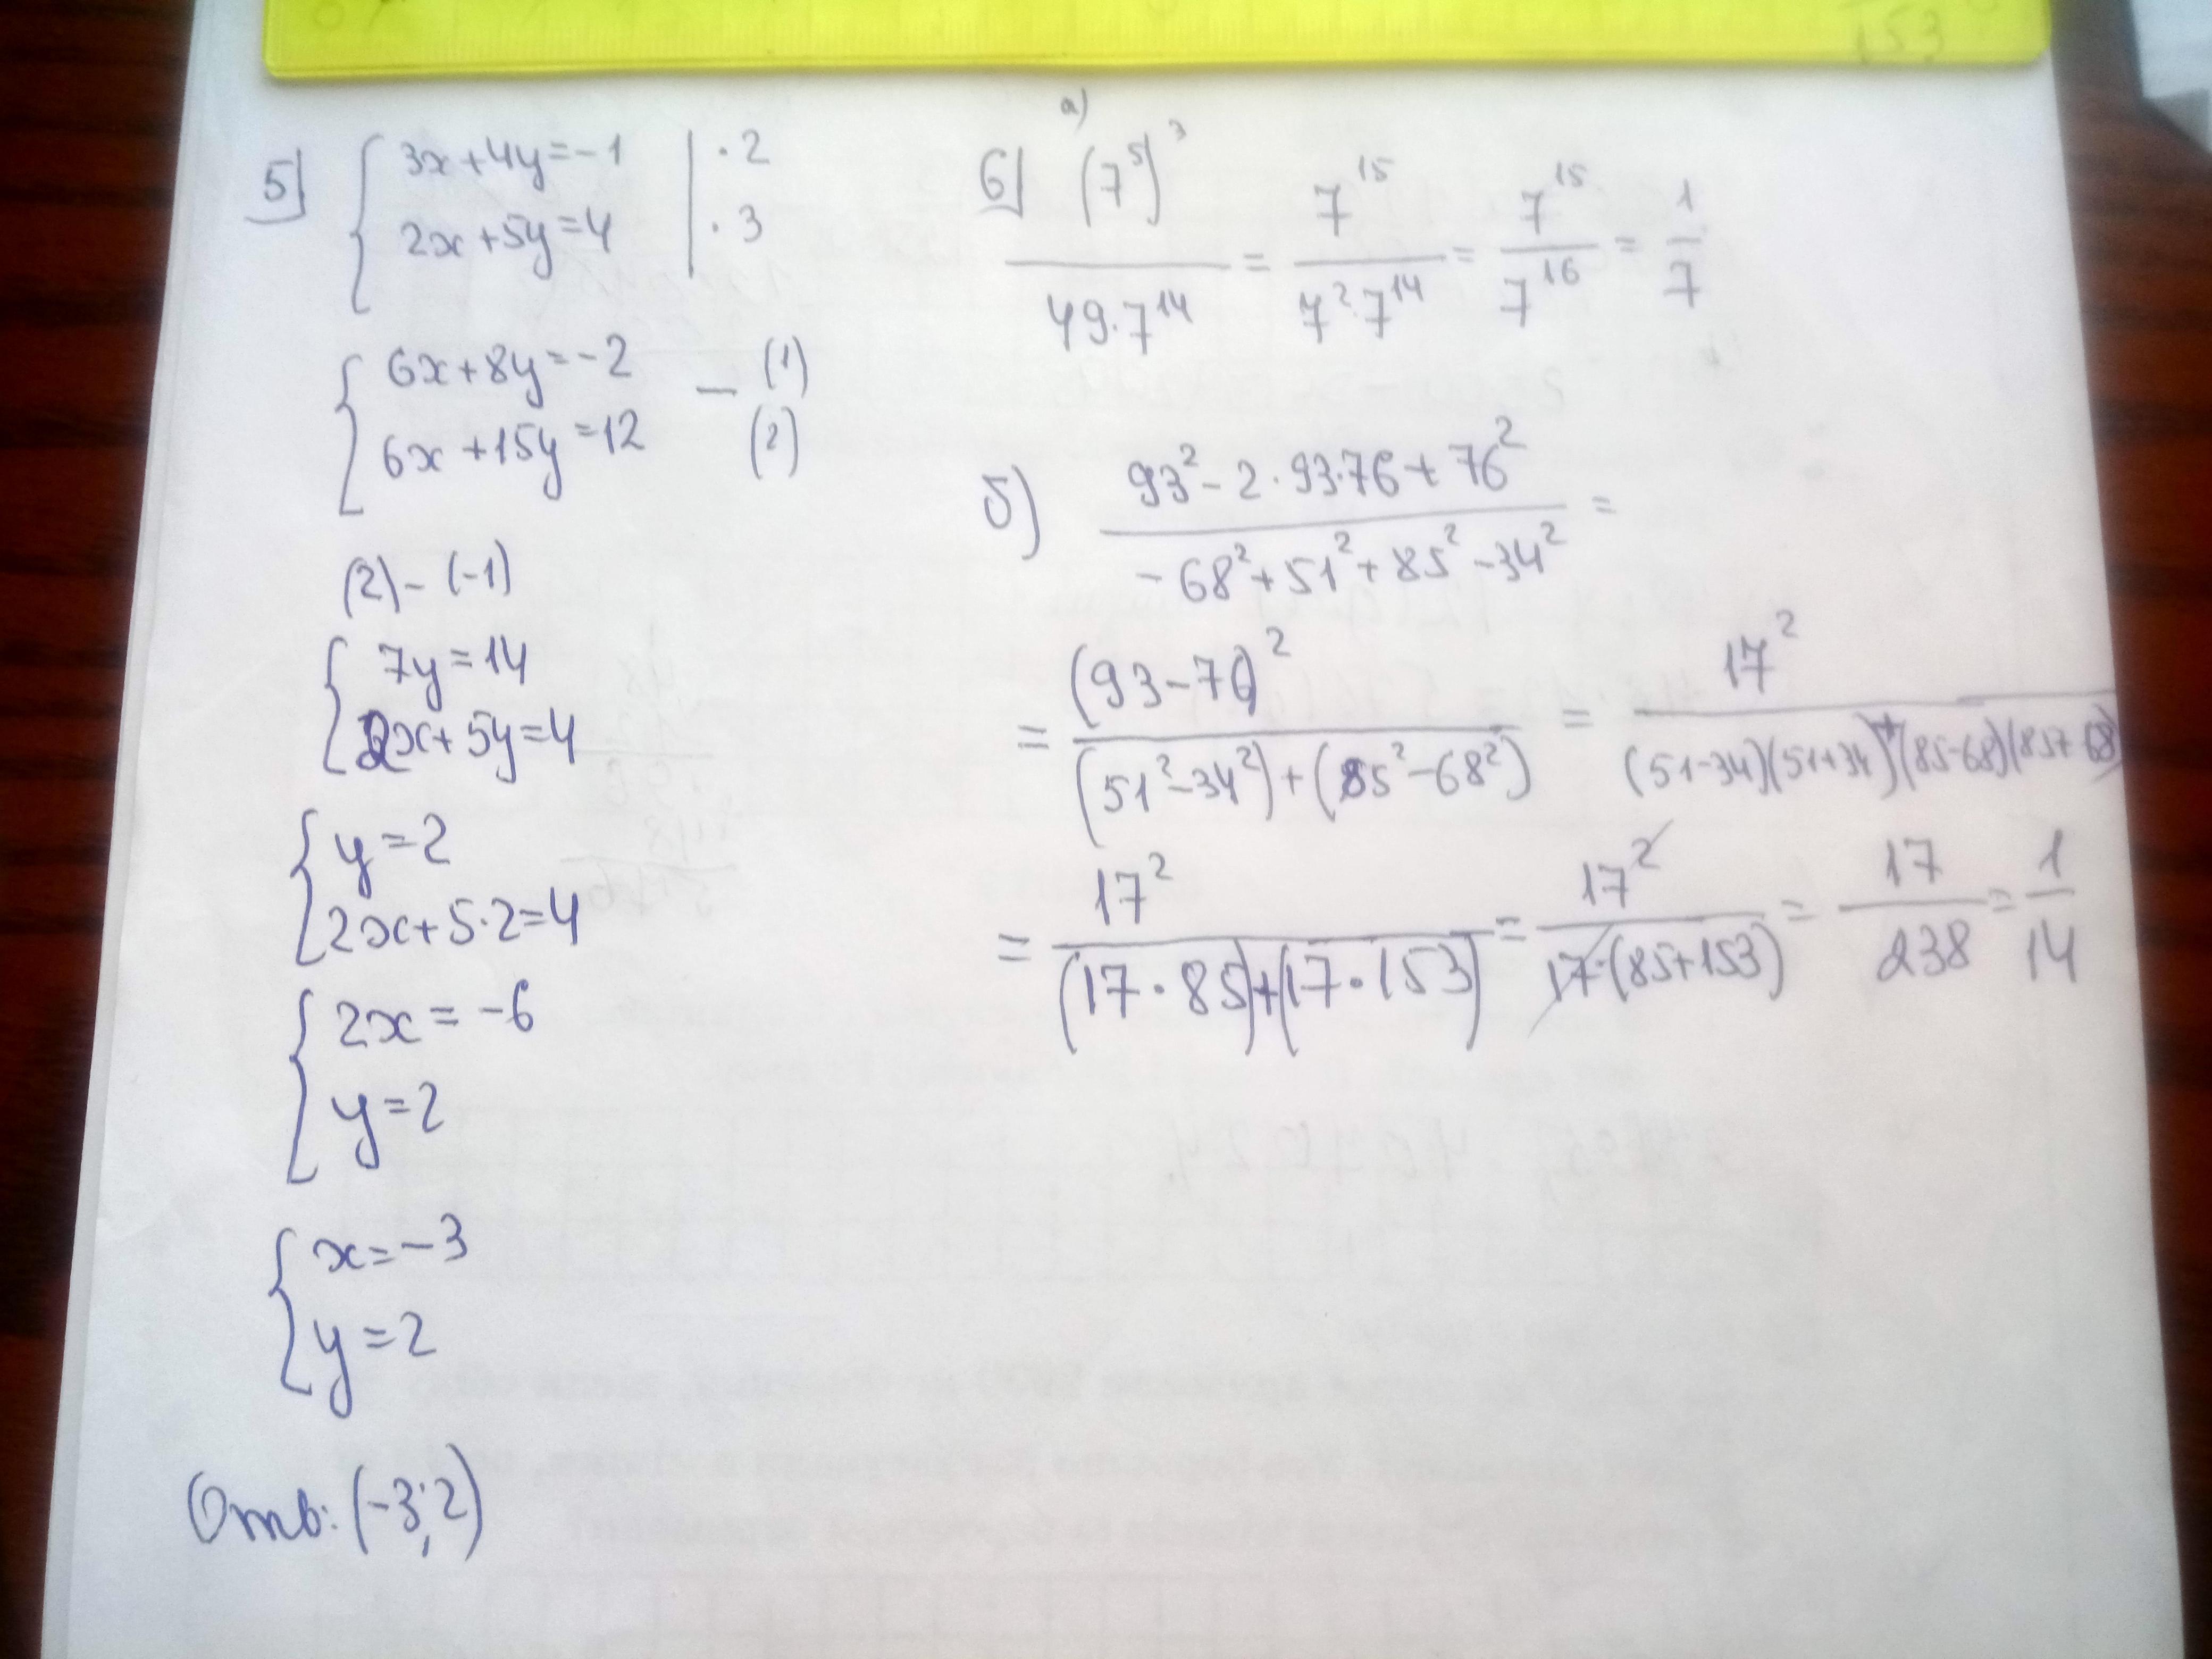 153
5) { 3x+4y=-1 | ·2
2x+5y=4 | ·3
{ 6x+8y=-2 - (1)
6x+15y=12 (2)
(2)-(-1)
{ 7y=14
2x+5y=4
{ y=2
2x+5·2=4
{ 2x=-6
y=2
{ x=-3
y=2
Отв: (-3;2)
6) а) (7^5)^3 / 49·7^14 = 7^15 / 7^2·7^14 = 7^15 / 7^16 = 1/7
б) 93^2-2·93·76+76^2 / -68^2+51^2+85^2-34^2 =
= (93-76)^2 / (51^2-34^2)+(85^2-68^2) = 17^2 / (51-34)(51+34)+(85-68)(85+68)
= 17^2 / (17·85)+(17·153) = 17^2 / 17·(85+153) = 17/238 = 1/14